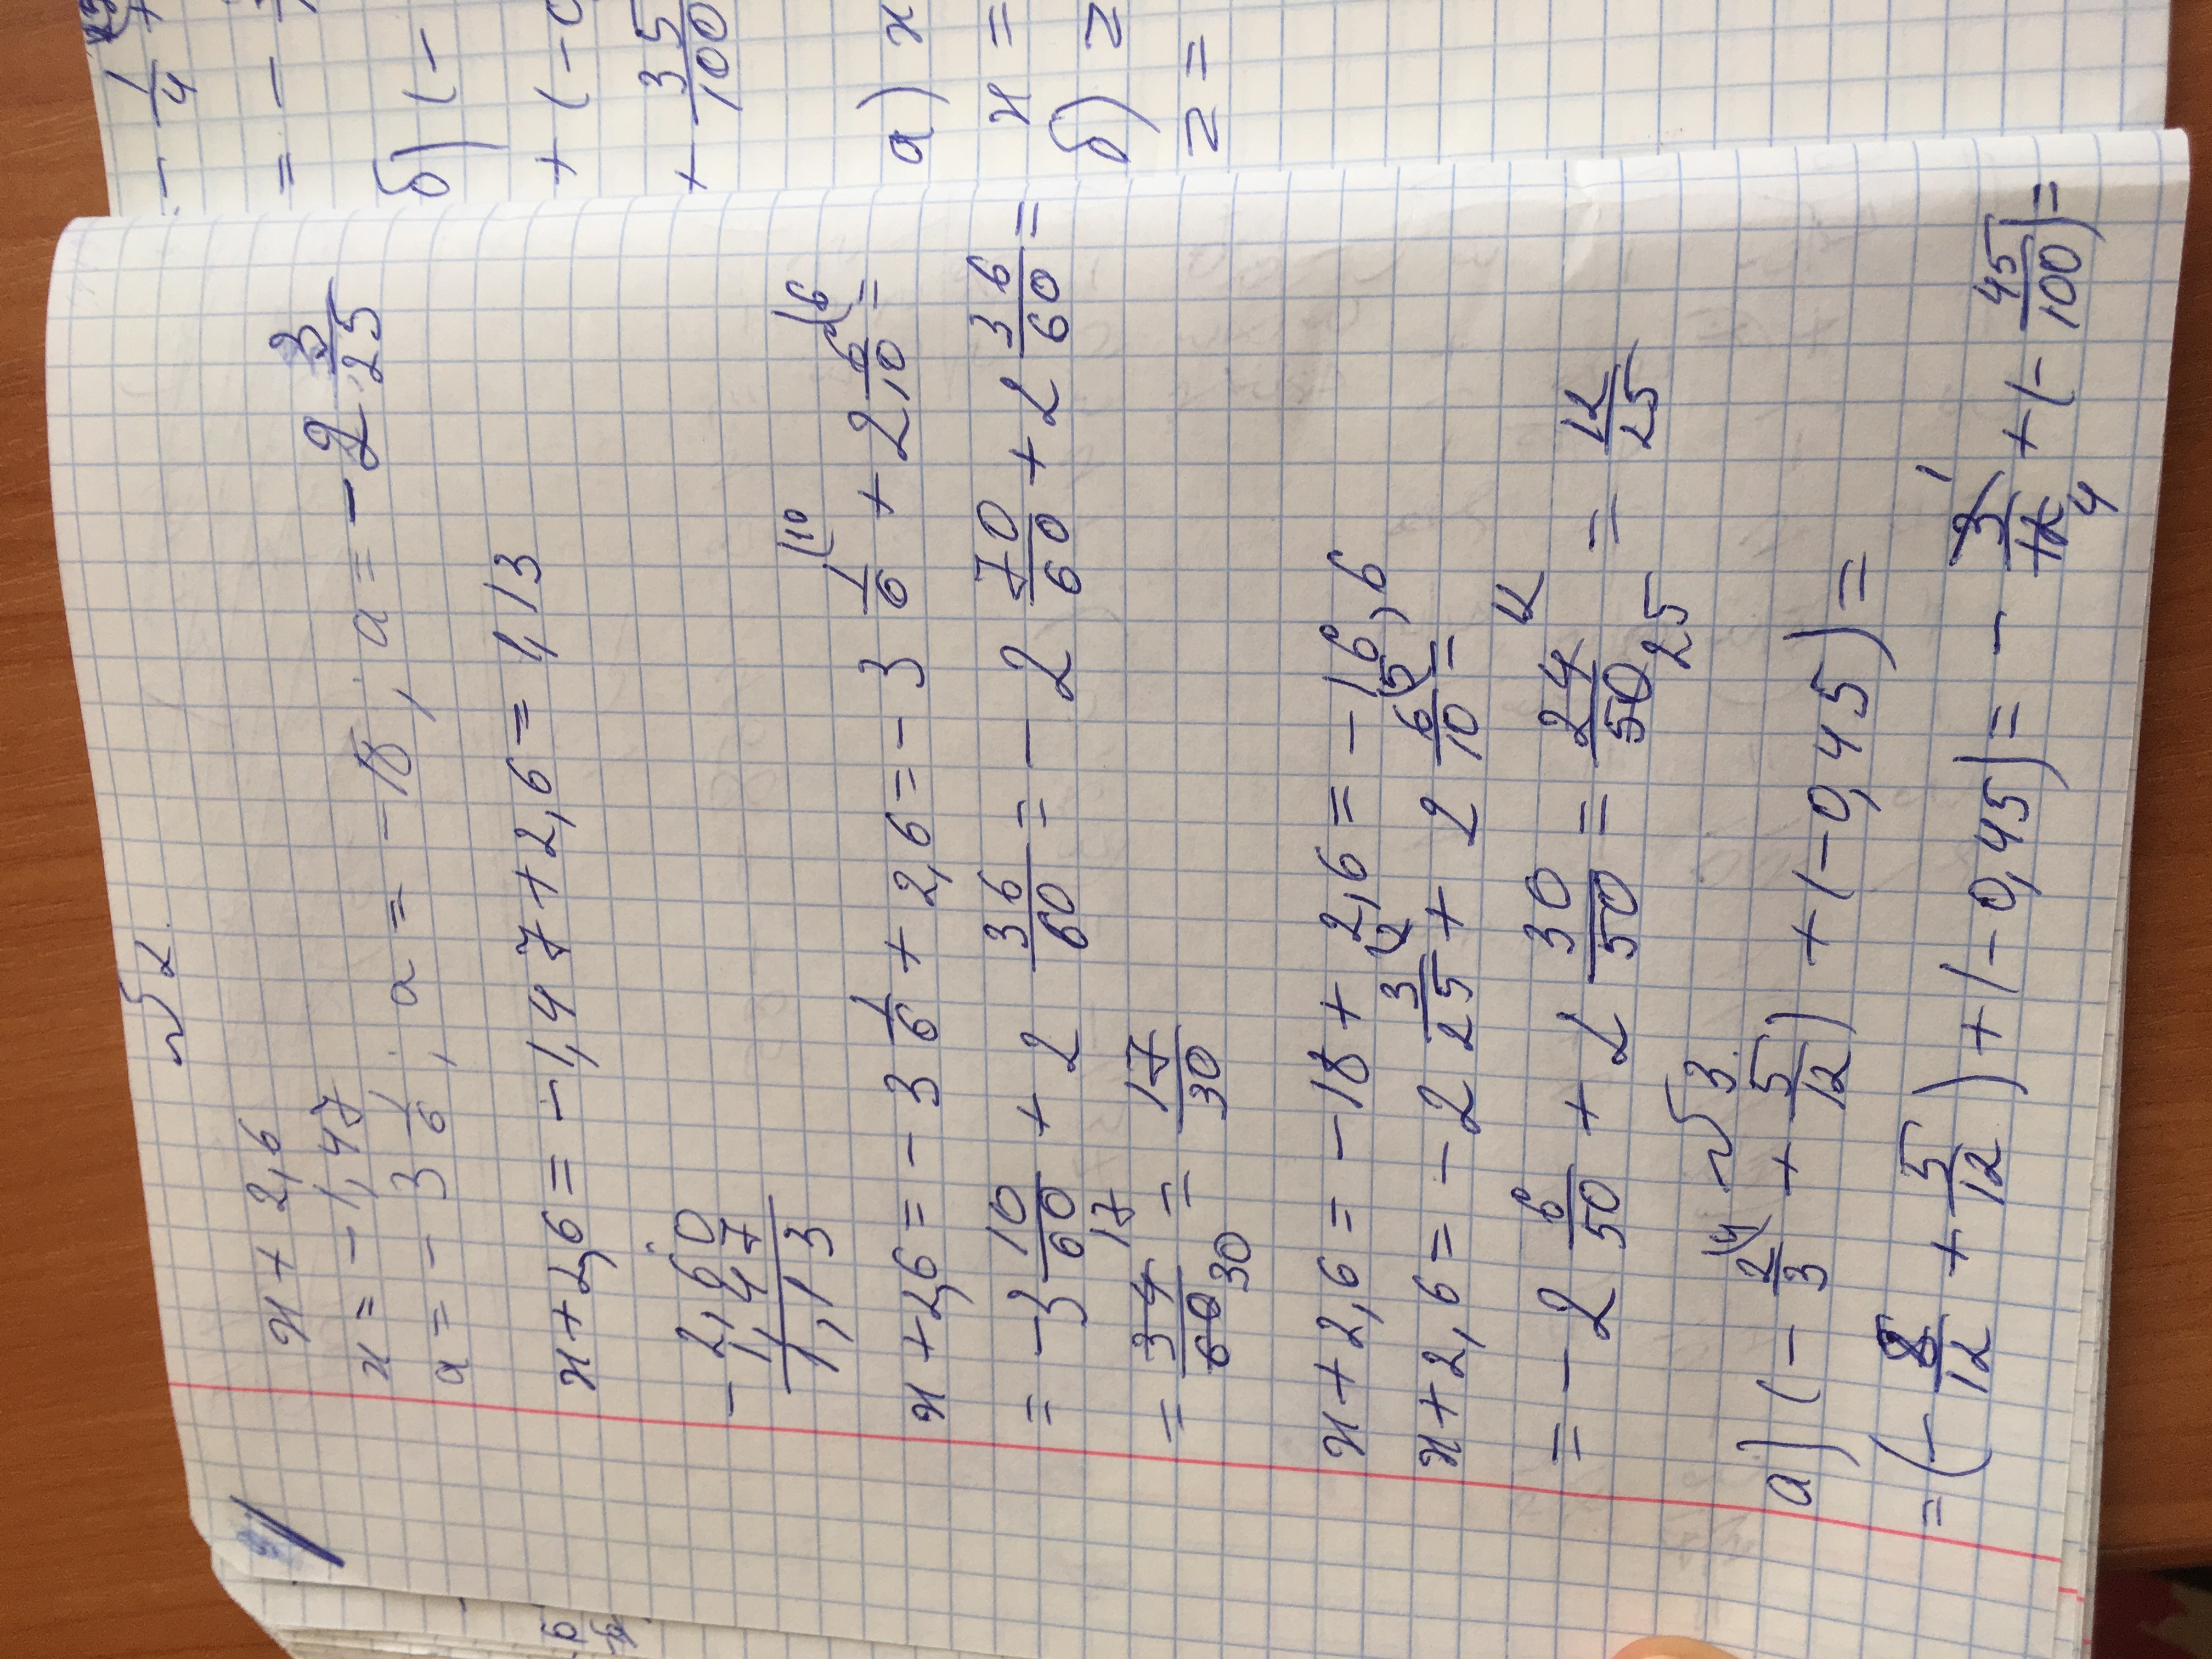 № 2.
х + 2,6
х = -1,47
а = -3 1/6, а = -18, а = -2 3/25
х + 2,6 = -1,47 + 2,6 = 1,13
- 2,60
1,47
1,13
х + 2,6 = -3 1/6 + 2,6 = -3 1/6 (10 + 2 6/10 (6 =
= -3 10/60 + 2 36/60 = -2 70/60 + 2 36/60 =
= 34/60 17 30 = 17/30
х + 2,6 = -18 + 2,6 = -16,6
х + 2,6 = -2 3/25 (2 + 2 6/10 (5 =
= -2 6/50 + 2 30/50 = 24/50 12 25 = 12/25
№ 3.
а) (-2/3 (4 + 5/12) + (-0,45) =
= (-8/12 + 5/12) + (-0,45) = -3/12 1 4 + (-45/100) =
- 1/4
= -
б) (-
+ (-0
+ 35/100
а) х
х =
б) z
z =